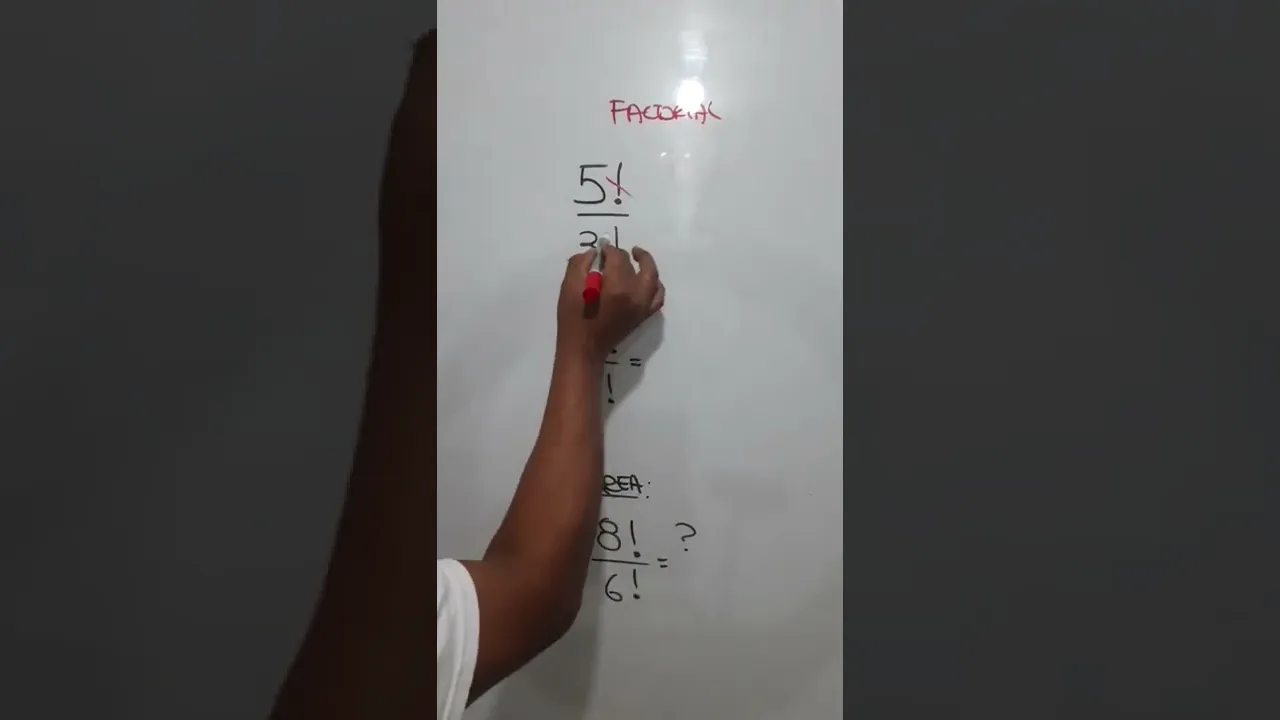 FACTORIAL
5!
! =
!
REA:
8! = ?
6!